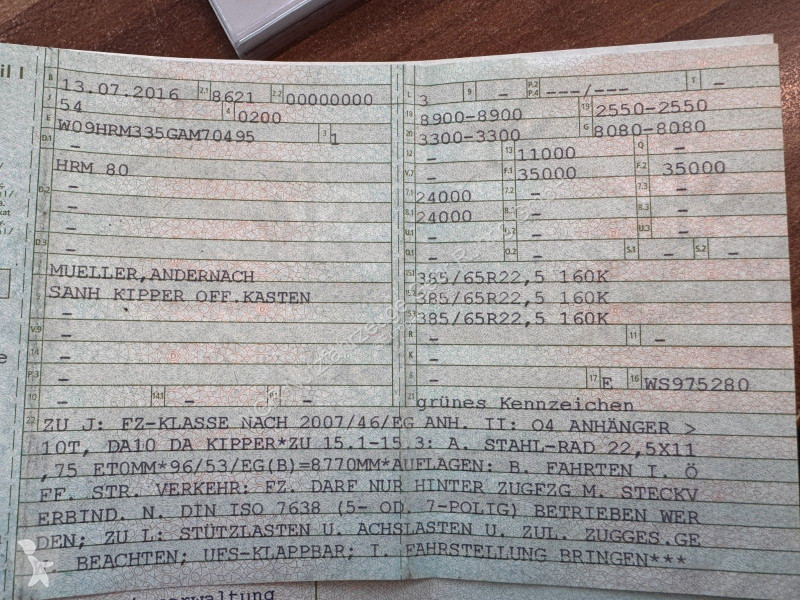 il I
B 13.07.2016 2.1 8621 2.2 00000000
J 54 4 0200
E W09HRM335GAM70495 3 1
D.1 –
HRM 80
D.2 –
–
–
D.3 –
MUELLER,ANDERNACH
SANH KIPPER OFF.KASTEN
–
V.9 –
14 –
P.3 –
10 – 14.1 – P.1 –
L 3 9 – P.2 P.4 ---/--- T –
18 8900-8900 19 2550-2550
20 3300-3300 G 8080-8080
12 – 13 11000 Q –
V.7 – F.1 35000 F.2 35000
7.1 24000 7.2 – 7.3 –
8.1 24000 8.2 – 8.3 –
U.1 – U.2 – U.3 –
– O.2 – S.1 – S.2 –
15.1 385/65R22,5 160K
385/65R22,5 160K
385/65R22,5 160K
R – 11 –
K –
6 – 17 E 16 WS975280
21 grünes Kennzeichen
22 ZU J: FZ-KLASSE NACH 2007/46/EG ANH. II: O4 ANHÄNGER >
10T, DA10 DA KIPPER*ZU 15.1-15.3: A. STAHL-RAD 22,5X11
,75 ET0MM*96/53/EG(B)=8770MM*AUFLAGEN: B. FAHRTEN I. Ö
FF. STR. VERKEHR: FZ. DARF NUR HINTER ZUGFZG M. STECKV
ERBIND. N. DIN ISO 7638 (5- OD. 7-POLIG) BETRIEBEN WER
DEN; ZU L: STÜTZLASTEN U. ACHSLASTEN U. ZUL. ZUGGES.GE
BEACHTEN; UFS-KLAPPBAR; I. FAHRSTELLUNG BRINGEN***